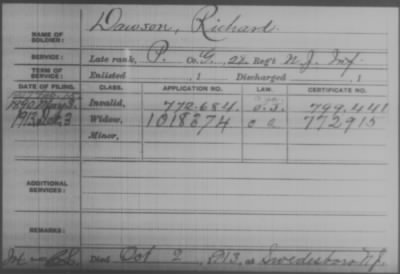 NAME OF SOLDIER: Dawson, Richard.
SERVICE: Late rank, P. Co. G, 22 Reg't N.J. Inf.
TERM OF SERVICE: Enlisted , 1 Discharged , 1
DATE OF FILING. CLASS. APPLICATION NO. LAW. CERTIFICATE NO.
1890 Invalid, 772.684 799.441
1913 Oct. 3 Widow, 1018674 772915
Minor,
ADDITIONAL SERVICES:
REMARKS:
Died Oct 2, 1913, at Swedesboro N.J.